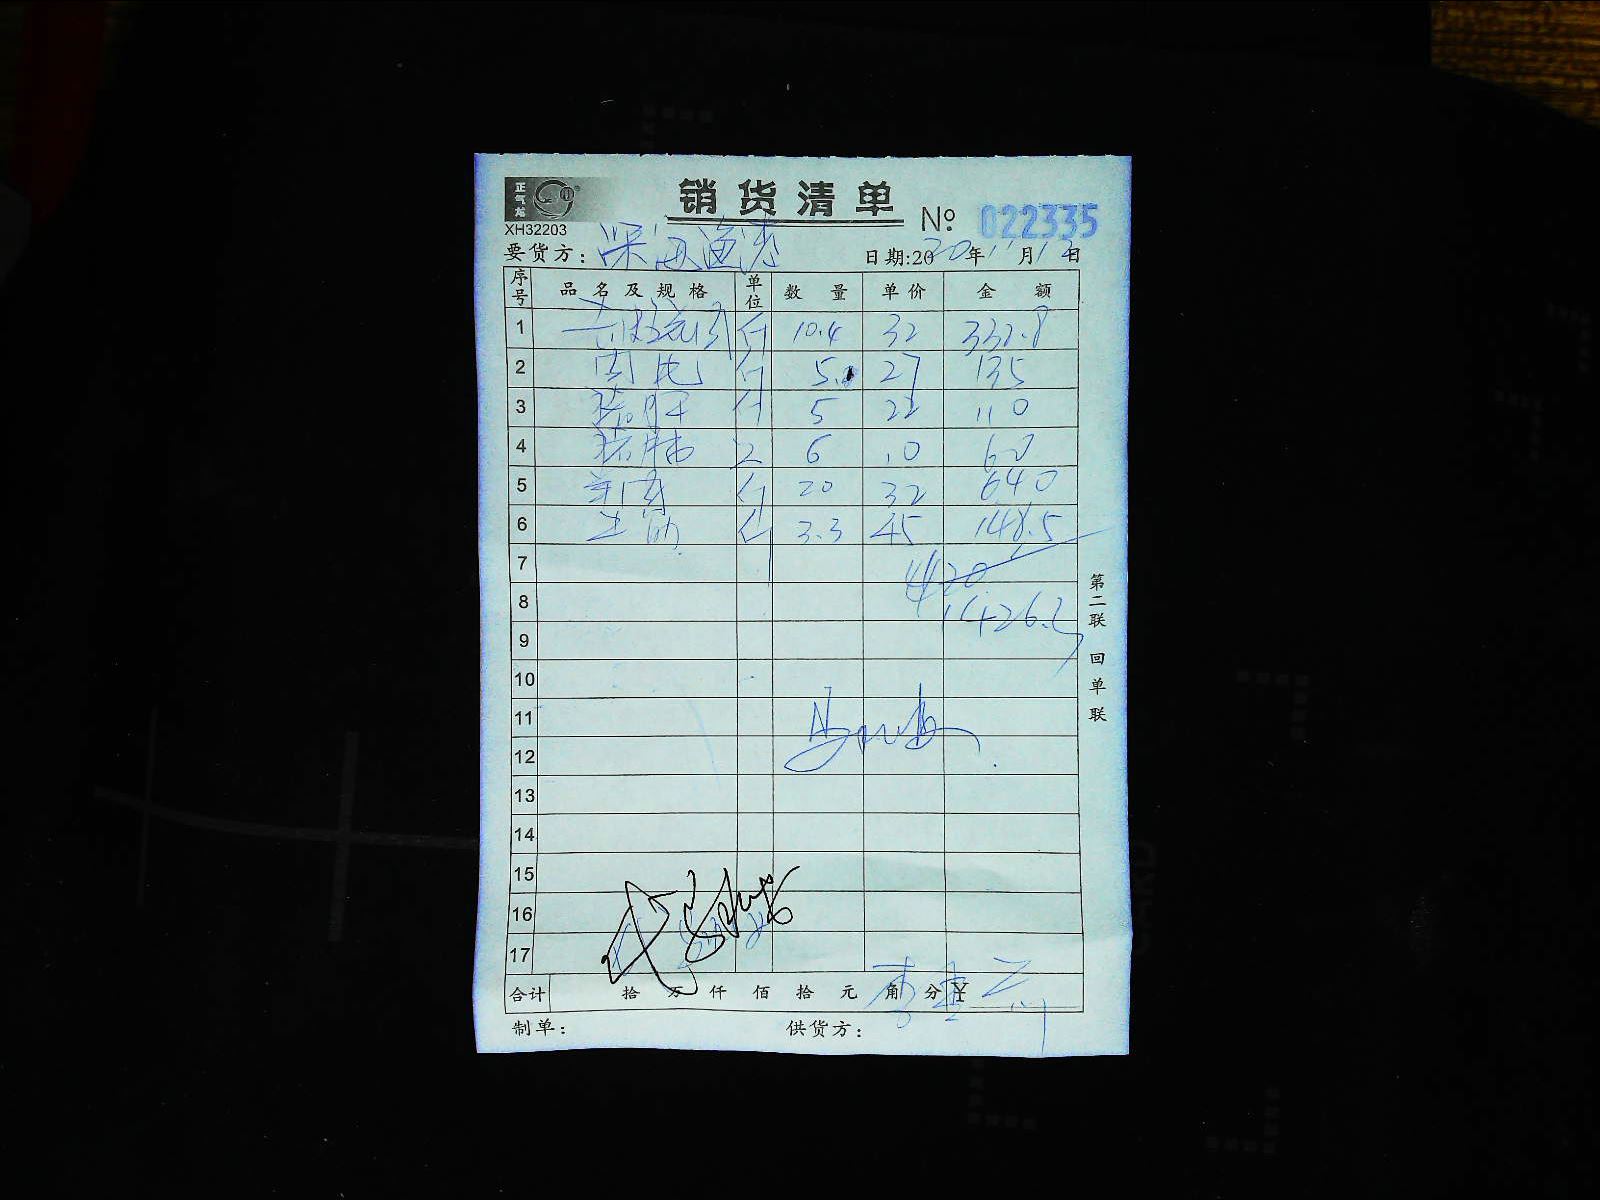 正气龙
销货清单
XH32203
№ 022335
要货方：深海渔湾 日期:2020年11月12日
序号 品名及规格 单位 数量 单价 金额
1 斤 10.4 32 332.8
2 斤 5.0 27 135
3 猪肝 斤 5 22 110
4 猪 6 10 60
5 斤 20 32 640
6 3.3 45 148.5
7
8 1426.3
9
10
11
12
13
14
15
16
17
合计 拾 万 仟 佰 拾 元 角 分 ¥
制单： 供货方：
第二联 回单联